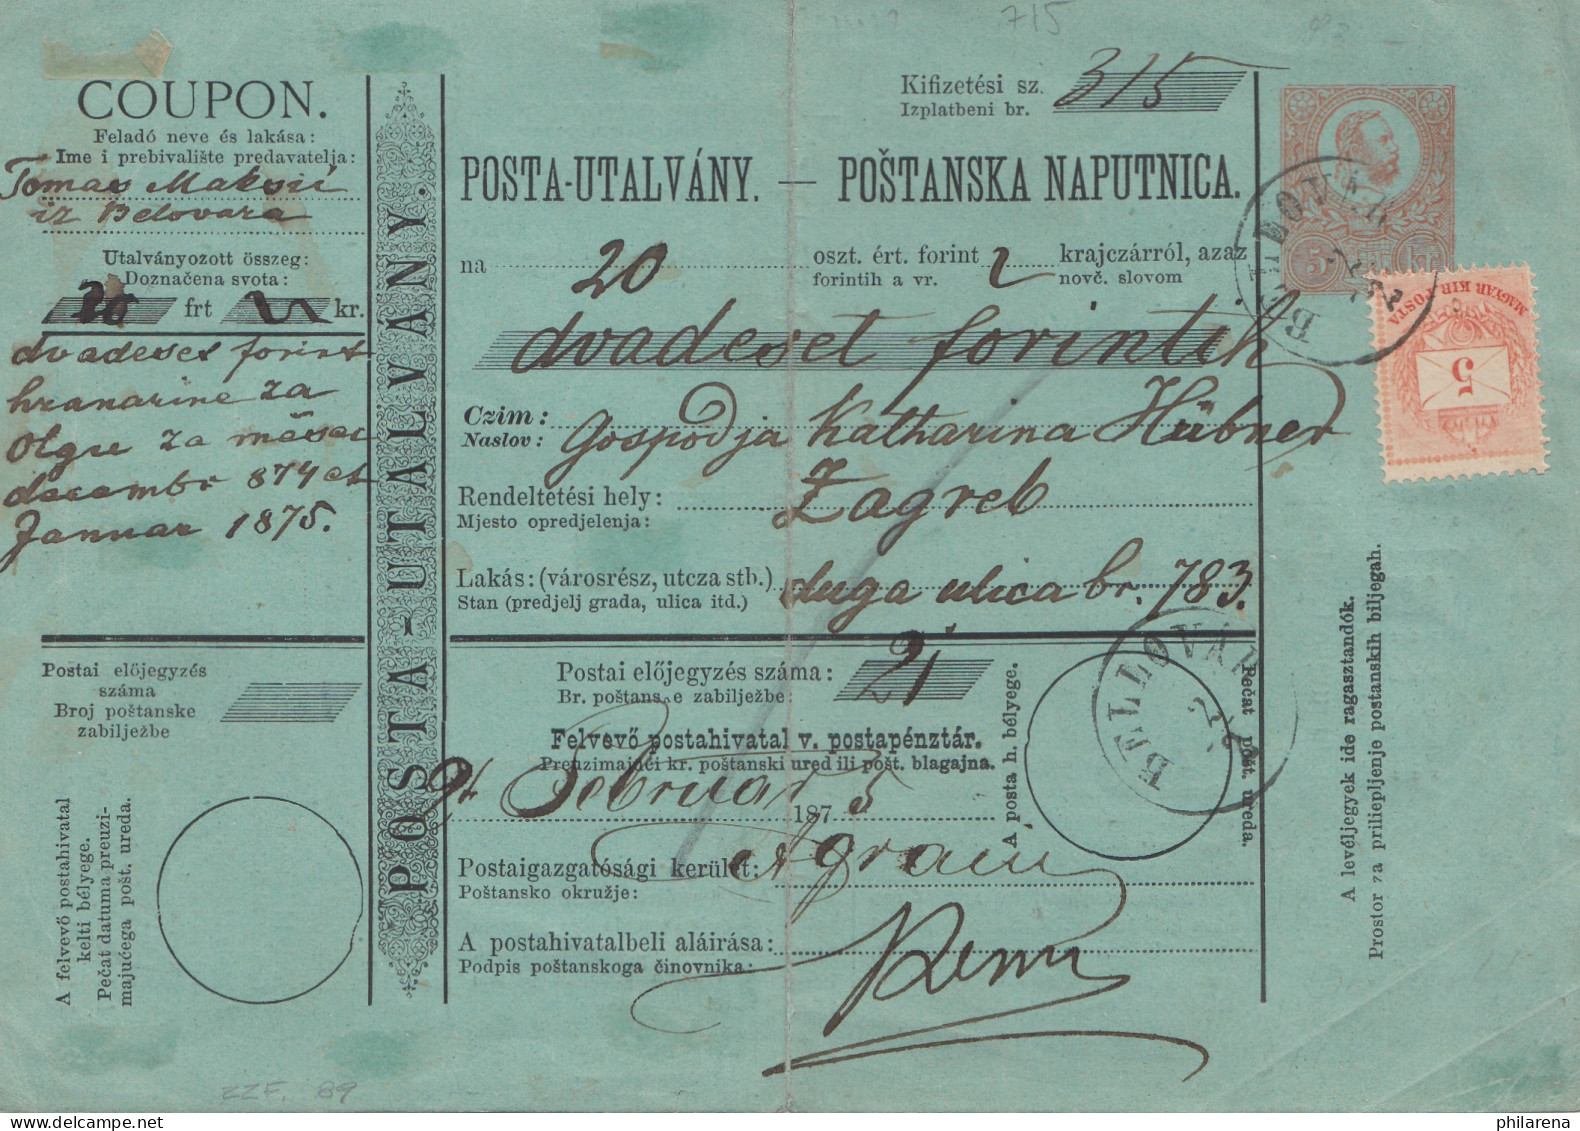 715
COUPON.
Feladó neve és lakása:
Ime i prebivalište predavatelja:
Tomas Maksić
iz Belovara
Utalványozott összeg:
Doznačena svota:
20 frt 2 kr.
dvadeset forint
hranarine za
Olgu za mèsec
decembr 874 et
Januar 1875.
Postai előjegyzés
száma
Broj poštanske
zabilježbe
A felvevő postahivatal
kelti bélyege.
Pečat datuma preuzi-
majućega pošt. ureda.
POSTA-UTALVÁNY.
Kifizetési sz.
Izplatbeni br.
315
POSTA-UTALVÁNY. — POŠTANSKA NAPUTNICA.
na 20 oszt. ért. forint 2 krajczárról, azaz
forintih a vr. novč. slovom
dvadeset forintih
Czim:
Naslov:
Gospodja Katharina Hübner
Rendeltetési hely:
Mjesto opredjelenja:
Zagreb
Lakás: (városrész, utcza stb.)
Stan (predjelj grada, ulica itd.)
duga ulica br. 783.
Postai előjegyzés száma:
Br. poštanske zabilježbe:
21
Felvevő postahivatal v. postapénztár.
Preuzimajući kr. poštanski ured ili pošt. blagajna.
9t Februar 1875
Postaigazgatósági kerület:
Poštansko okružje:
Agram
A postahivatalbeli aláirása:
Podpis poštanskoga činovnika:
A posta h. bélyege.
Pečat pošt. ureda.
BELLOVÁR
BELLOVÁR
5 KR
MAGYAR KIR. POSTA
5
A levéljegyek ide ragasztandók.
Prostor za priliepljenje postanskih biljegah.
ZZF. 89
philarena.com